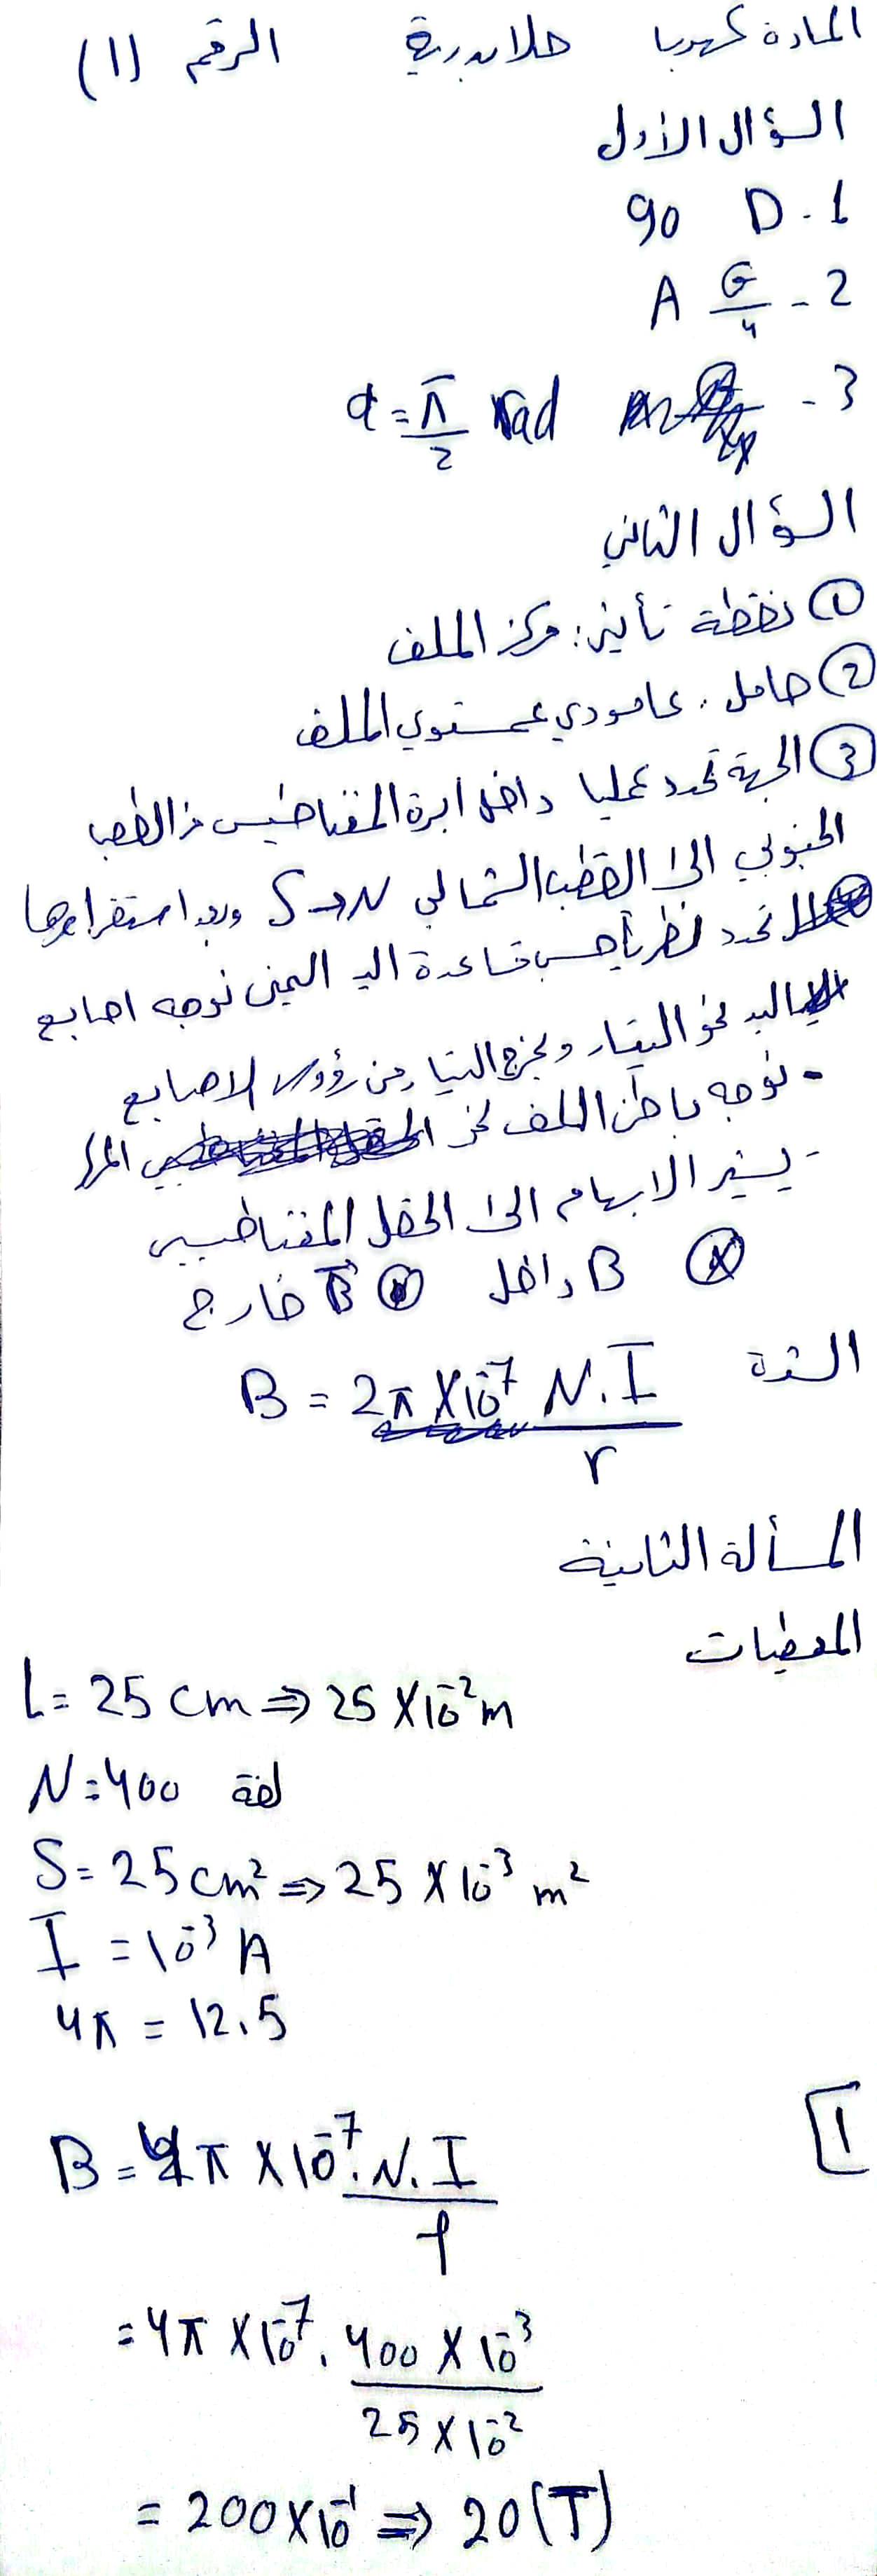 المادة كهربا حلا بدرية الرقم (11)
السؤال الأول
1- D 90
2- G/4 A
3- α = π/2 rad
السؤال الثاني
① نقطة تأثير: مركز الملف
② حامل: عامودي عمستوي الملف
③ الجهة تحدد عمليا داخل ابرة المغناطيس من القطب
الجنوبي الى القطب الشمالي S→N وبعد استقرارها
تحدد نظرياً حسب قاعدة اليد اليمنى نوجه اصابع
اليد نحو التيار ويخرج التيار من رؤوس الاصابع
- نوجه باطن الكف نحو
- يشير الابهام الى الحقل المغناطيسي
ⓧ B داخل ⊙ B خارج
الشدة B = 2π×10⁻⁷ N.I / r
المسألة الثانية
المعطيات
L = 25 cm ⇒ 25 × 10⁻² m
N = 400 لفة
S = 25 cm² ⇒ 25 × 10⁻³ m²
I = 10⁻³ A
4π = 12.5
1
B = 4π × 10⁻⁷ . N.I / l
= 4π × 10⁻⁷ . 400 × 10⁻³ / 25 × 10⁻²
= 200 × 10⁻¹ ⇒ 20 (T)